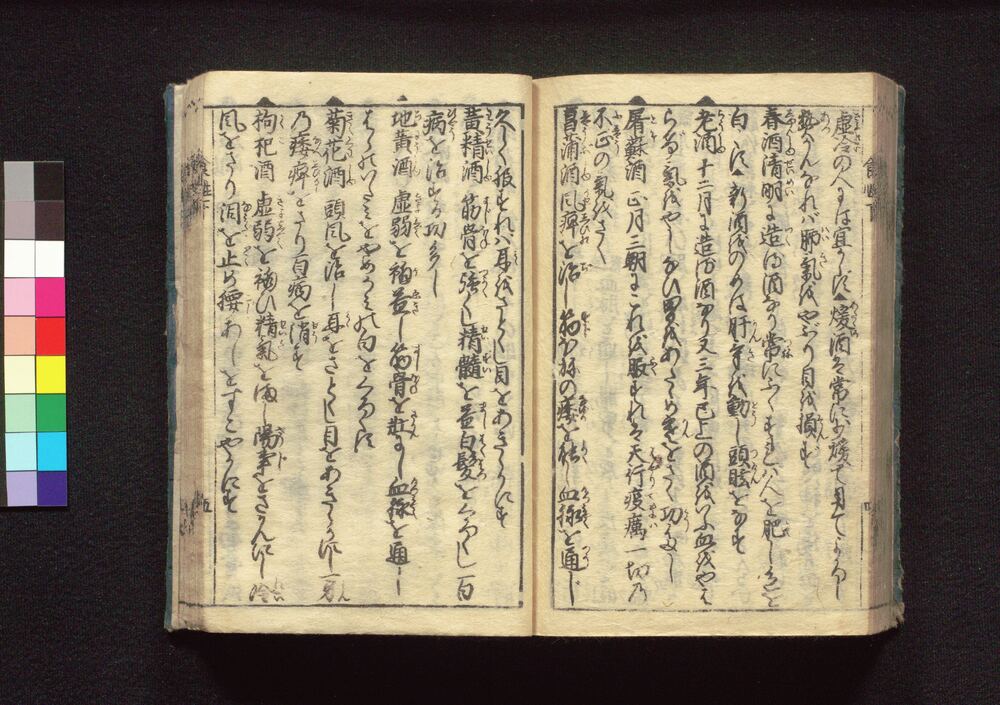 虚冷の人には宜からず▲煖酒は常に少煖て用てよろし
熱かんなれバ肺氣をやぶり目を損ず
春酒清明に造る酒なり常にふくすれバ人を肥し色を
白くす▲新酒をのめば肝氣を動し頭眩をなす
老酒 十二月に造る酒なり又三年已上の酒をいふ血をやは
らげ氣をやしなひ胃をあたゝめ寒をさく功多し
屠蘇酒 正月三朝にこれを服すれば天行疫癘一切乃
不正の氣をさく
菖蒲酒 風痺を治し 血脉を通じ
久しく服すれハ耳をさとく目をあきらかにす
黄精酒 筋骨を強くし精髓を益白髪をくろくし百
病を治する功多し
地黄酒 虚弱を補益し筋骨を壯にし血脉を通し
はらのいたみをやめかみの白をくろくす
菊花酒 頭風を治し耳をさとくし目をあきらかにし
乃痿痺をさり百病を消す
枸杞酒 虚弱を補ひ精氣を海し陽事をさかんにし冷
風をさり涙を止め腰あしをすこやかにす